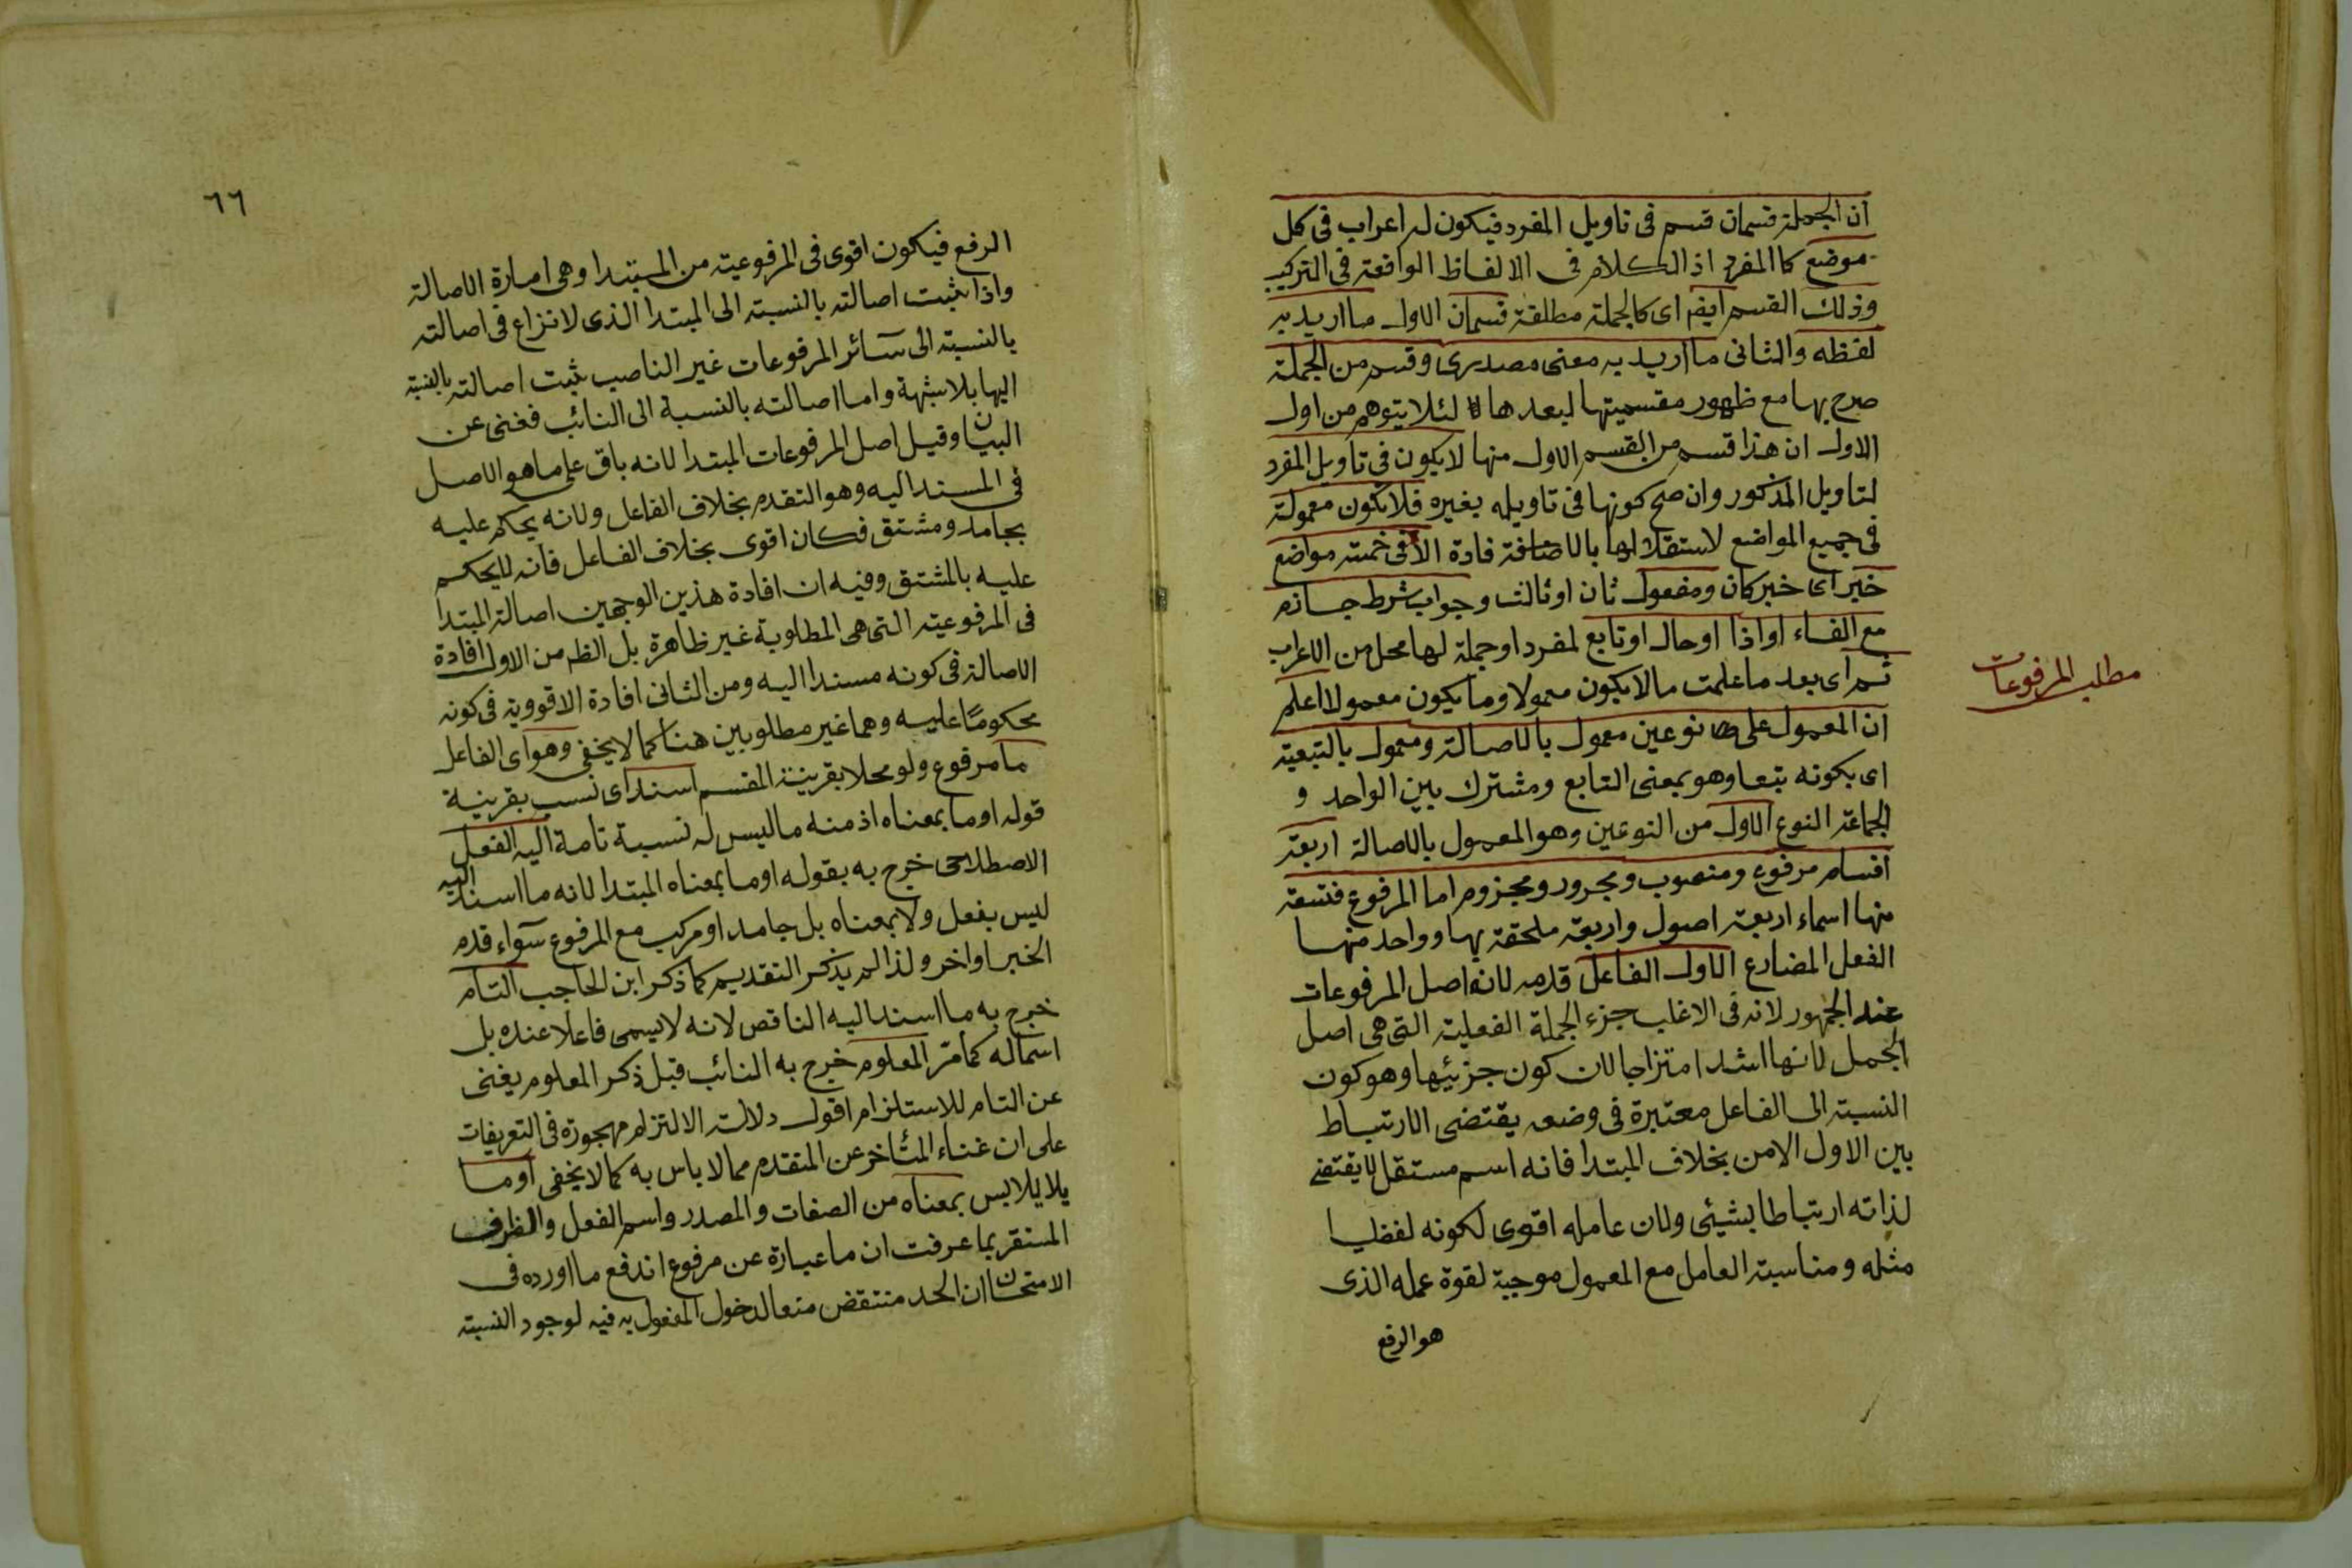 ان الجملة قسمان قسم فى تاويل المفرد فيكون له اعراب فى كل
موضع كالمفرد اذ الكلام فى الالفاظ الواقعة فى التركيب
وذلك القسم ايضا اى كالجملة مطلقة قسمان الاول ما اريد به
لفظه والثانى ما اريد به معنى مصدرى وقسم من الجملة
صرح بها مع ظهور مقسميتها لبعدها لئلا يتوهم من اول
الاول ان هذا قسم من القسم الاول منها لا يكون فى تاويل المفرد
لتاويل المذكور وان صح كونها فى تاويله بغيره فلا تكون معمولة
فى جميع المواضع لاستقلالها بالاضافة فادة الا فى خمسة مواضع
خبر اى خبر كان ومفعول ثان او ثالث وجواب شرط جازم
مع الفاء او اذا او حال او تابع لمفرد او جملة لها محل من الاعراب
ثم اى بعد ما علمت ما لا يكون معمولا وما يكون معمولا اعلم
مطلب المرفوعات
ان المعمول على نوعين معمول بالاصالة ومعمول بالتبعية
اى بكونه تبعا وهو بمعنى التابع ومشترك بين الواحد و
الجماعة النوع الاول من النوعين وهو المعمول بالاصالة اربعة
اقسام مرفوع ومنصوب ومجرور ومجزوم اما المرفوع فتسعة
منها اسماء اربعة اصول واربعة ملحقة بها وواحد منها
الفعل المضارع الاول الفاعل قدمه لانه اصل المرفوعات
عند الجمهور لانه فى الاغلب جزء الجملة الفعلية التى هى اصل
الجمل لانها اشد امتزاجا لان كون جزئيها وهو كون
النسبة الى الفاعل معتبرة فى وضعه يقتضى الارتباط
بين الاول الامن بخلاف المبتدا فانه اسم مستقل لا يقتضى
لذاته ارتباطا بشيئ ولان عامله اقوى لكونه لفظيا
مثله ومناسبة العامل مع المعمول موجبة لقوة عمله الذى
هو الرفع
٦٦
الرفع فيكون اقوى فى المرفوعية من المبتدا وهى امارة الاصالة
واذا ثبت اصالته بالنسبة الى المبتدا الذى لا نزاع فى اصالته
بالنسبة الى سائر المرفوعات غير الناصب ثبت اصالته بالنسبة
اليها بلا شبهة واما اصالته بالنسبة الى النائب فغنى عن
البيان وقيل اصل المرفوعات المبتدا لانه باق على ما هو الاصل
فى المسند اليه وهو التقدم بخلاف الفاعل ولانه يحكم عليه
بجامد ومشتق فكان اقوى بخلاف الفاعل فانه لا يحكم
عليه بالمشتق وفيه ان افادة هذين الوجهين اصالة المبتدا
فى المرفوعية التى هى المطلوبة غير ظاهرة بل الظم من الاول افادة
الاصالة فى كونه مسندا اليه ومن الثانى افادة الاقووية فى كونه
محكوما عليه وهما غير مطلوبين هنا كما لا يخفى وهو اى الفاعل
ما مرفوع ولو محلا بقرينة المقسم اسند اى نسب بقرينة
قوله او ما بمعناه اذ منه ما ليس له نسبة تامة اليه الفعل
الاصطلاحى خرج به بقوله او ما بمعناه المبتدا لانه ما اسند اليه
ليس بفعل ولا بمعناه بل جامد او مركب مع المرفوع سواء قدم
الخبر او اخر ولذا لم يذكر التقديم كما ذكر ابن الحاجب التام
خرج به ما اسند اليه الناقص لانه لا يسمى فاعلا عنده بل
اسما له كما مر المعلوم خرج به النائب قبل ذكر المعلوم يغنى
عن التام للاستلزام اقول دلالة الالتزام مهجورة فى التعريفات
على ان غناء المتأخر عن المتقدم مما لا باس به كما لا يخفى او ما
بمعناه من الصفات والمصدر واسم الفعل والظرف
المستقر بما عرفت ان ما عبارة عن مرفوع اندفع ما اورده فى
الامتحان ان الحد منتقض منعا لدخول المفعول به فيه لوجود النسبة